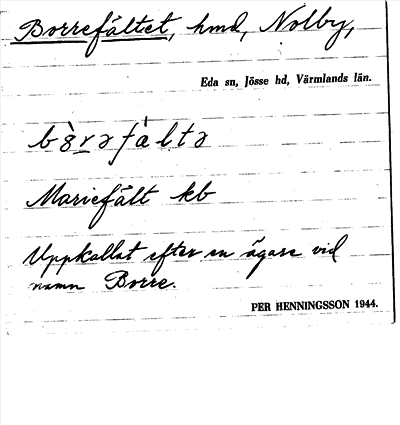 Borrefältet, hmd, Nolby,
Eda sn, Jösse hd, Värmlands län.
Mariefält kb
Uppkallat efter en ägare vid
namn Borre.
PER HENNINGSSON 1944.